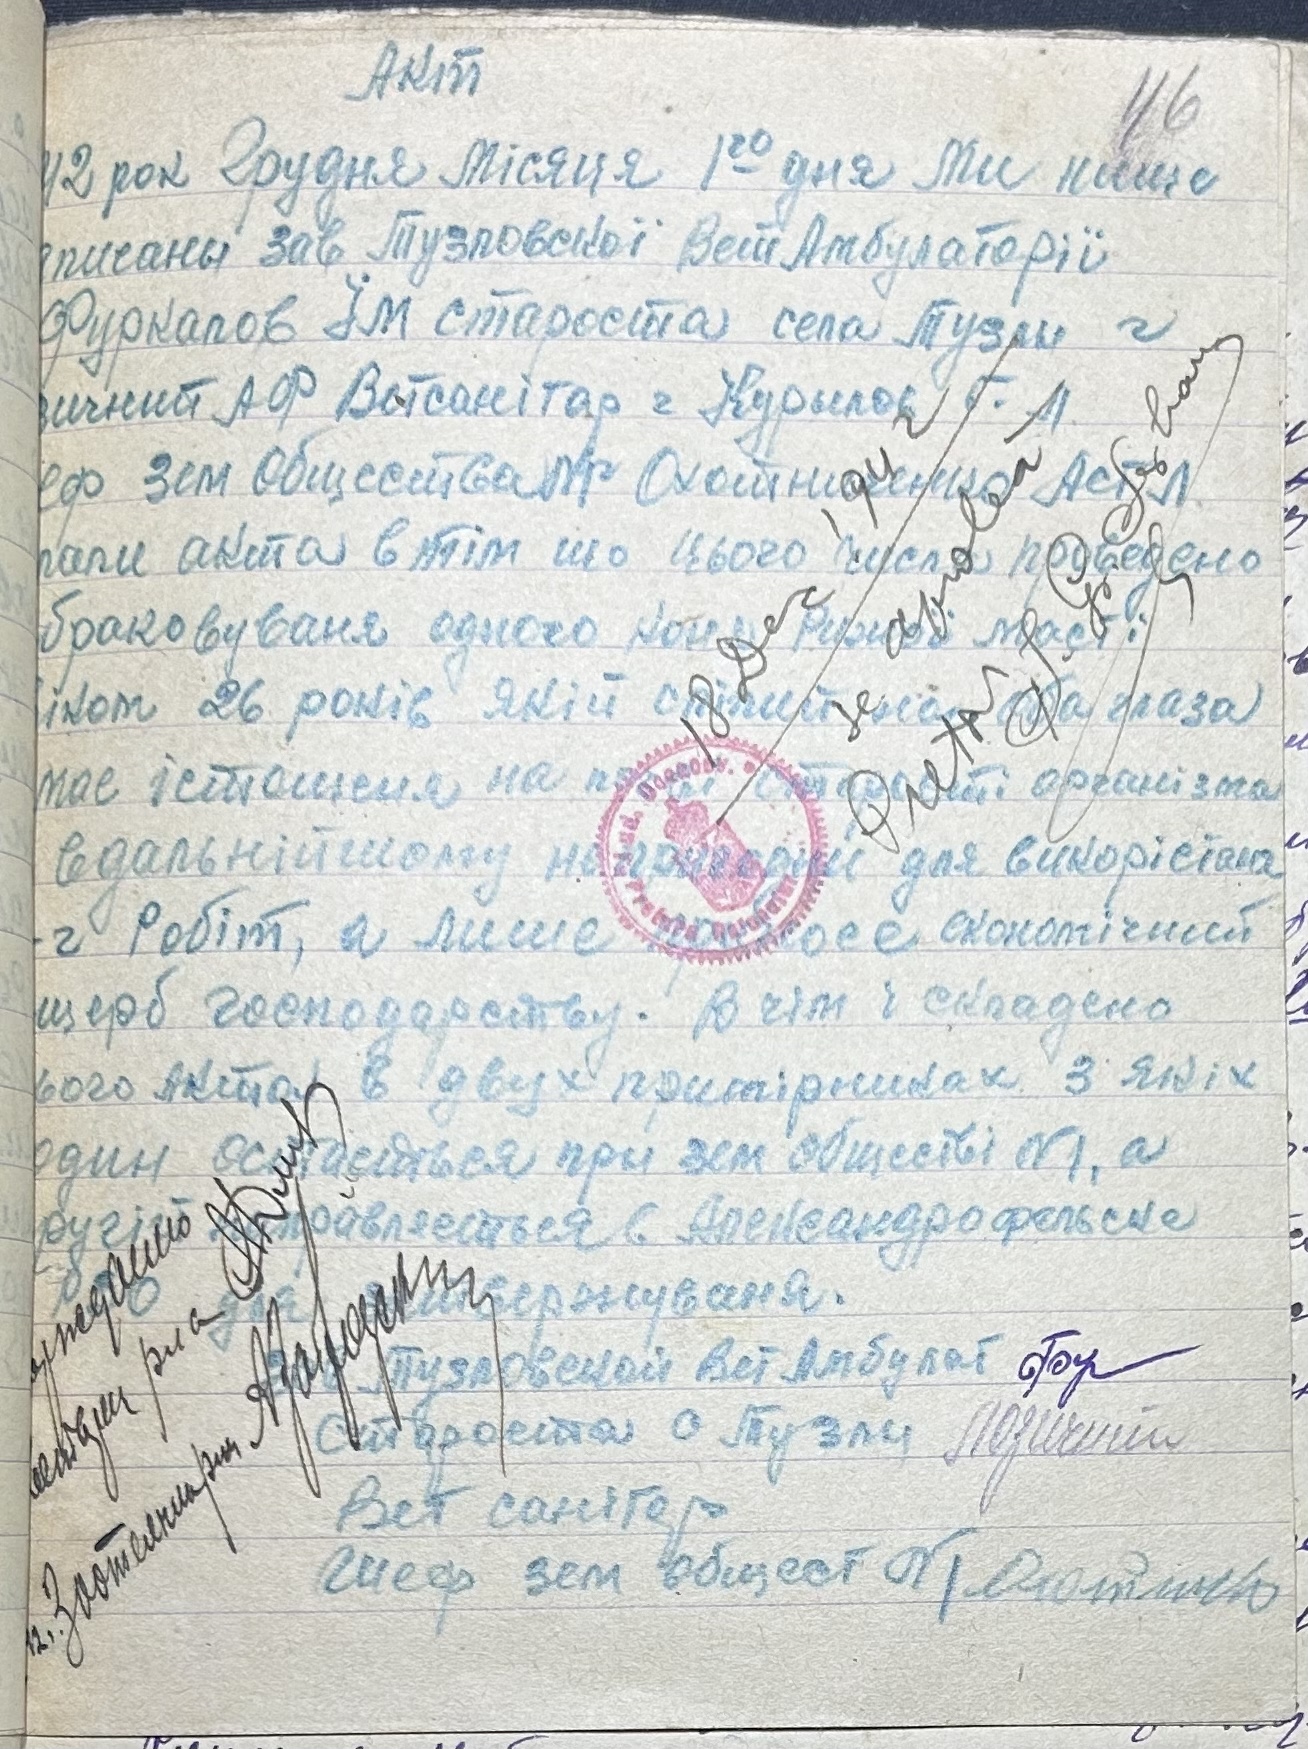 Акт
116
42 рок Грудня Місяця 1го дня Ми нище
пичаны зав Тузловскої Вет Амбулаторії
Фуркалов ЇМ староста села Тузли г
зичний АФ Ветсанітар г Курылов Г. Л.
еф зем Общества №1 г Охотниченко Аст Л
лали акта втім що цього числа проведено
браковуваня одного коня Рижой масті
іком 26 років якій сліпий на оба глаза
має істощеня на почві старості організма
вдальнійшому непригодний для використаня
-г Робіт, а лише приносе економічний
щерб господарству. В чім і складено
ього акта в двух примірниках з якіх
один остається при зем обществі №1, а
ругій отправляється в Александрофельске
РГО для утвержуваня.
Зав Тузловской Вет Амбулат
Староста с Тузли Лозичний
Вет санітар
Шеф зем общест №1 Охотниченко
18 Dec 1942
se aprobă
Pretor
Зоотехник